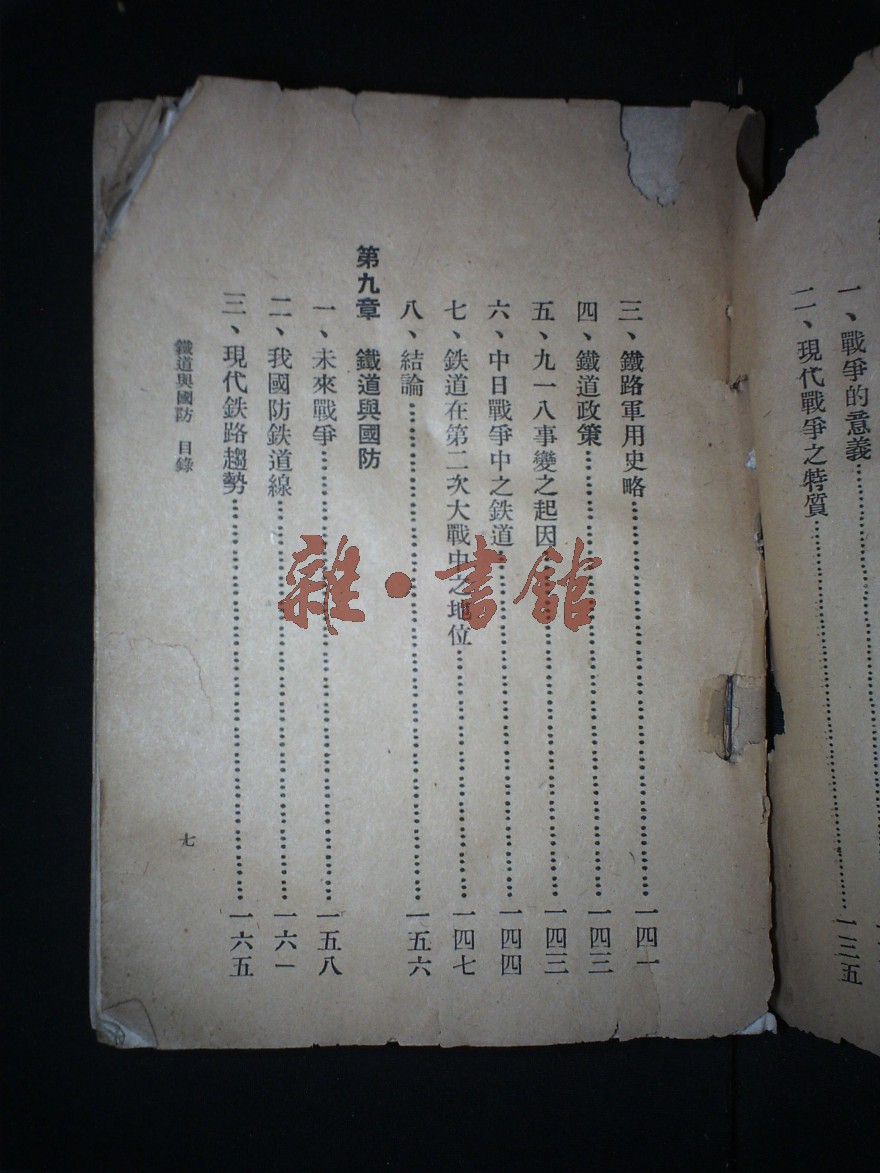 一、戰爭的意義……一三五
二、現代戰爭之特質……
三、鐵路軍用史略……一四一
四、鐵道政策……一四三
五、九一八事變之起因……一四三
六、中日戰爭中之鉄道……一四四
七、鉄道在第二次大戰中之地位……一四七
八、結論……一五六
第九章 鐵道與國防
一、未來戰爭……一五八
二、我國防鉄道線……一六一
三、現代鉄路趨勢……一六五
鐵道與國防 目錄
七
雜·書館